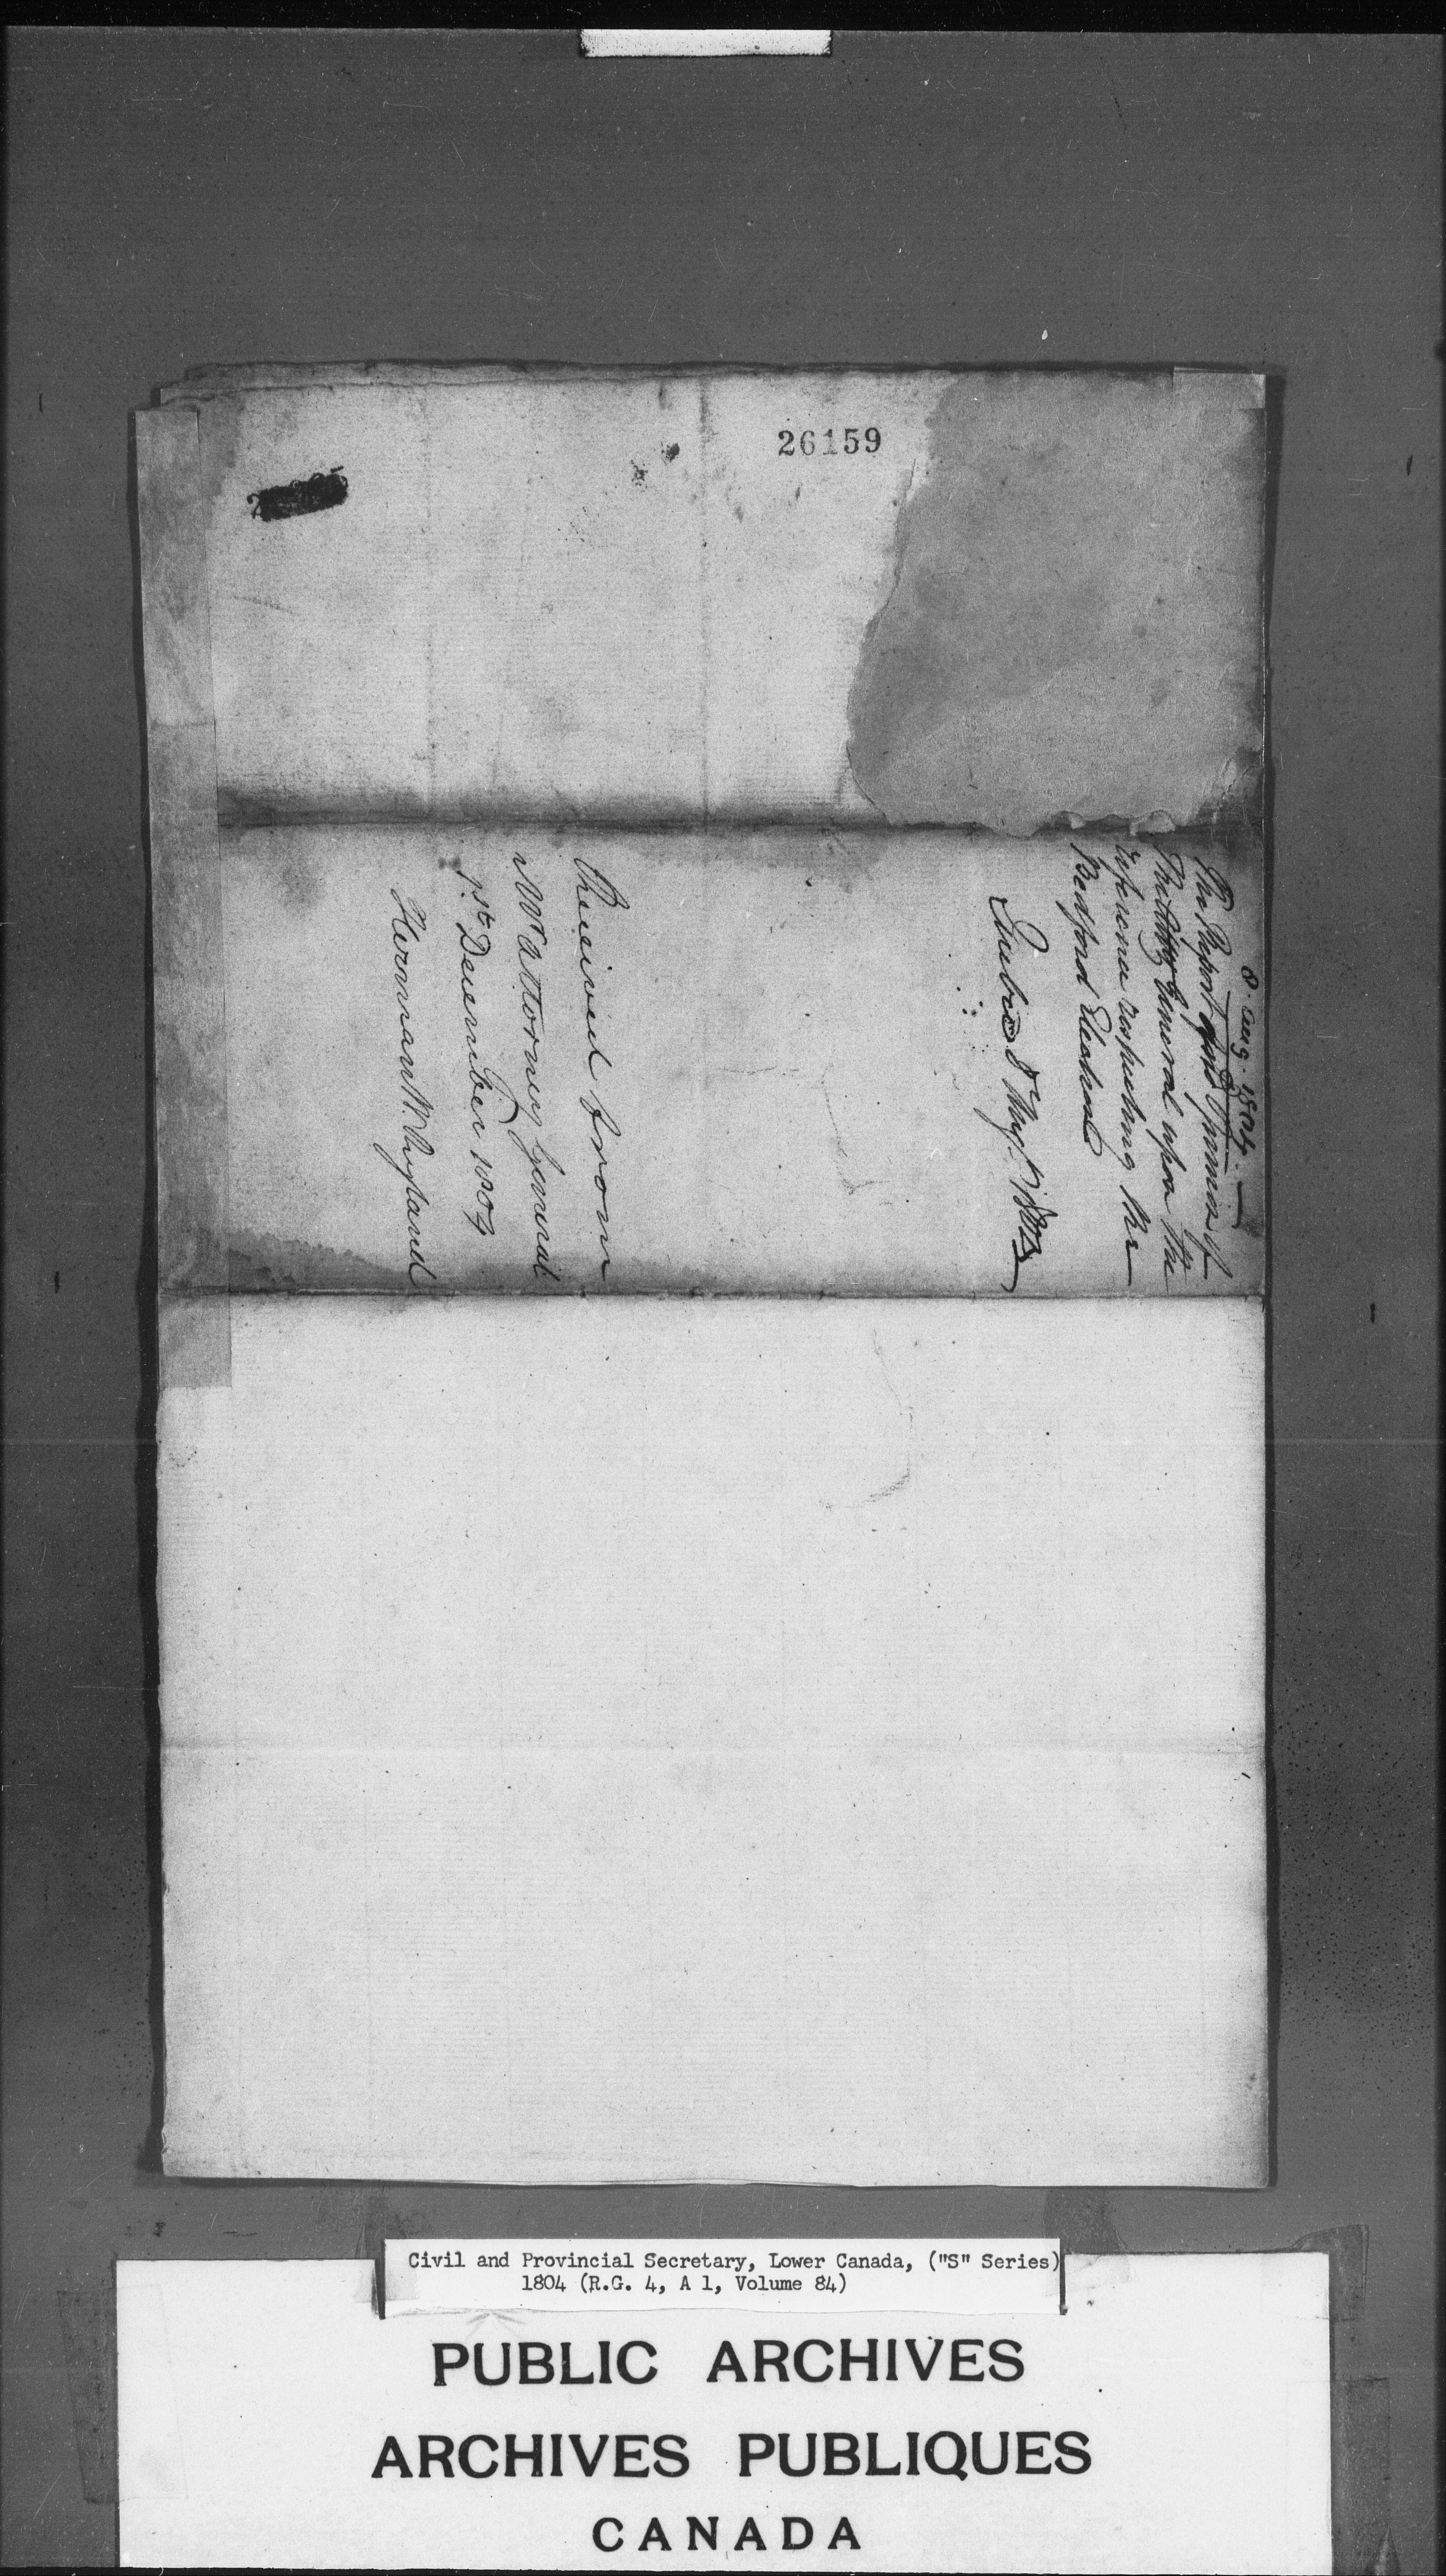 26159
8. Aug. 1804. —
The Report and Opinion of
The Atty General upon the
reference respecting the
Bedford Election
Quebec 8th Augt 1804
Received from
Mr Attorney General
1st December 1804
Herman W. Ryland
Civil and Provincial Secretary, Lower Canada, ("S" Series)
1804 (R.G. 4, A 1, Volume 84)
PUBLIC ARCHIVES
ARCHIVES PUBLIQUES
CANADA